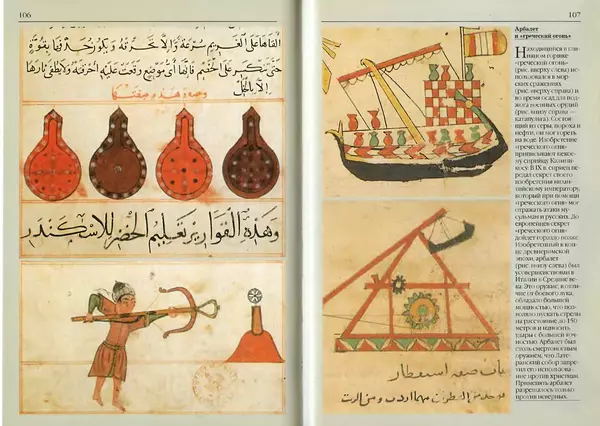 106
القاها على الغريم سرعة والا تحرقه ويكون حدفا بما بقوة
حتى تنكسر على الخصم فانها اى موضع وقعت عليه احرقته ولا يطفى نارها
الا بالخل
وهذه صفتها
وهذه القوارير تعليم الخضر للاسكندر
107
Арбалет
и «греческий огонь»
Находящийся в гли-
няном горшке
«греческий огонь»
(рис. вверху слева) ис-
пользовался в мор-
ских сражениях
(рис. вверху справа) и
во время осад для под-
жога военных орудий
(рис. внизу справа —
катапульта). Состоя-
щий из серы, пороха и
нефти, он мог гореть
на воде. Изобретение
«греческого огня»
приписывают некое-
му сирийцу Каллини-
косу. В IX в. сириец пе-
редал секрет своего
изобретения визан-
тийскому императору,
который при помощи
«греческого огня» мог
отражать атаки му-
сульман и русских. До
европейцев секрет
«греческого огня»
дойдет гораздо позже.
Изобретенный в кон-
це древнеримской
эпохи, арбалет
(рис. внизу слева) был
усовершенствован в
Италии в Средние ве-
ка. Это оружие, в отли-
чие от боевого лука,
обладало большей
мощностью, что поз-
воляло пускать стрелы
на расстояние до 150
метров и наносить
удары с большей точ-
ностью. Арбалет был
столь смертоносным
оружием, что Лате-
ранский собор запре-
тил его использова-
ние против христиан.
Применять арбалет
разрешалось только
против неверных.
صفه اسقطار